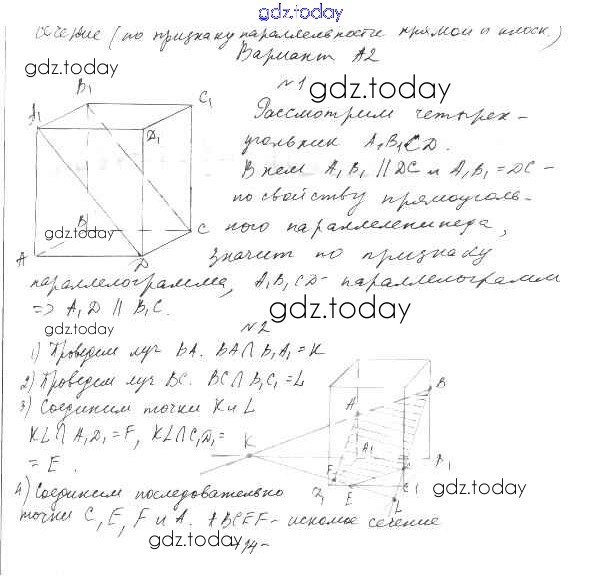 gdz.today
сечение (по признаку параллельности прямой и плоск.)
Вариант А2
gdz.today
№1
gdz.today
Рассмотрим четырех-
угольник A₁B₁CD.
В нем A₁B₁ || DC и A₁B₁ = DC –
по свойству прямоуголь-
ного параллелепипеда,
значит по признаку
параллелограмма, A₁B₁CD – параллелограмм
=> A₁D || B₁C.
A₁
B₁
C₁
D₁
A
B
C
D
gdz.today
gdz.today
gdz.today
№2
1) Проведем луч BA. BA∩B₁A₁ = K
2) Проведем луч BC. BC∩B₁C₁ = L
3) Соединим точки K и L
KL∩A₁D₁ = F, KL∩C₁D₁ =
= E.
4) Соединим последовательно
точки C, E, F и A. ABCEF – искомое сечение
K
A
B
A₁
B₁
F
D₁
E
C
C₁
L
gdz.today
gdz.today
-414-